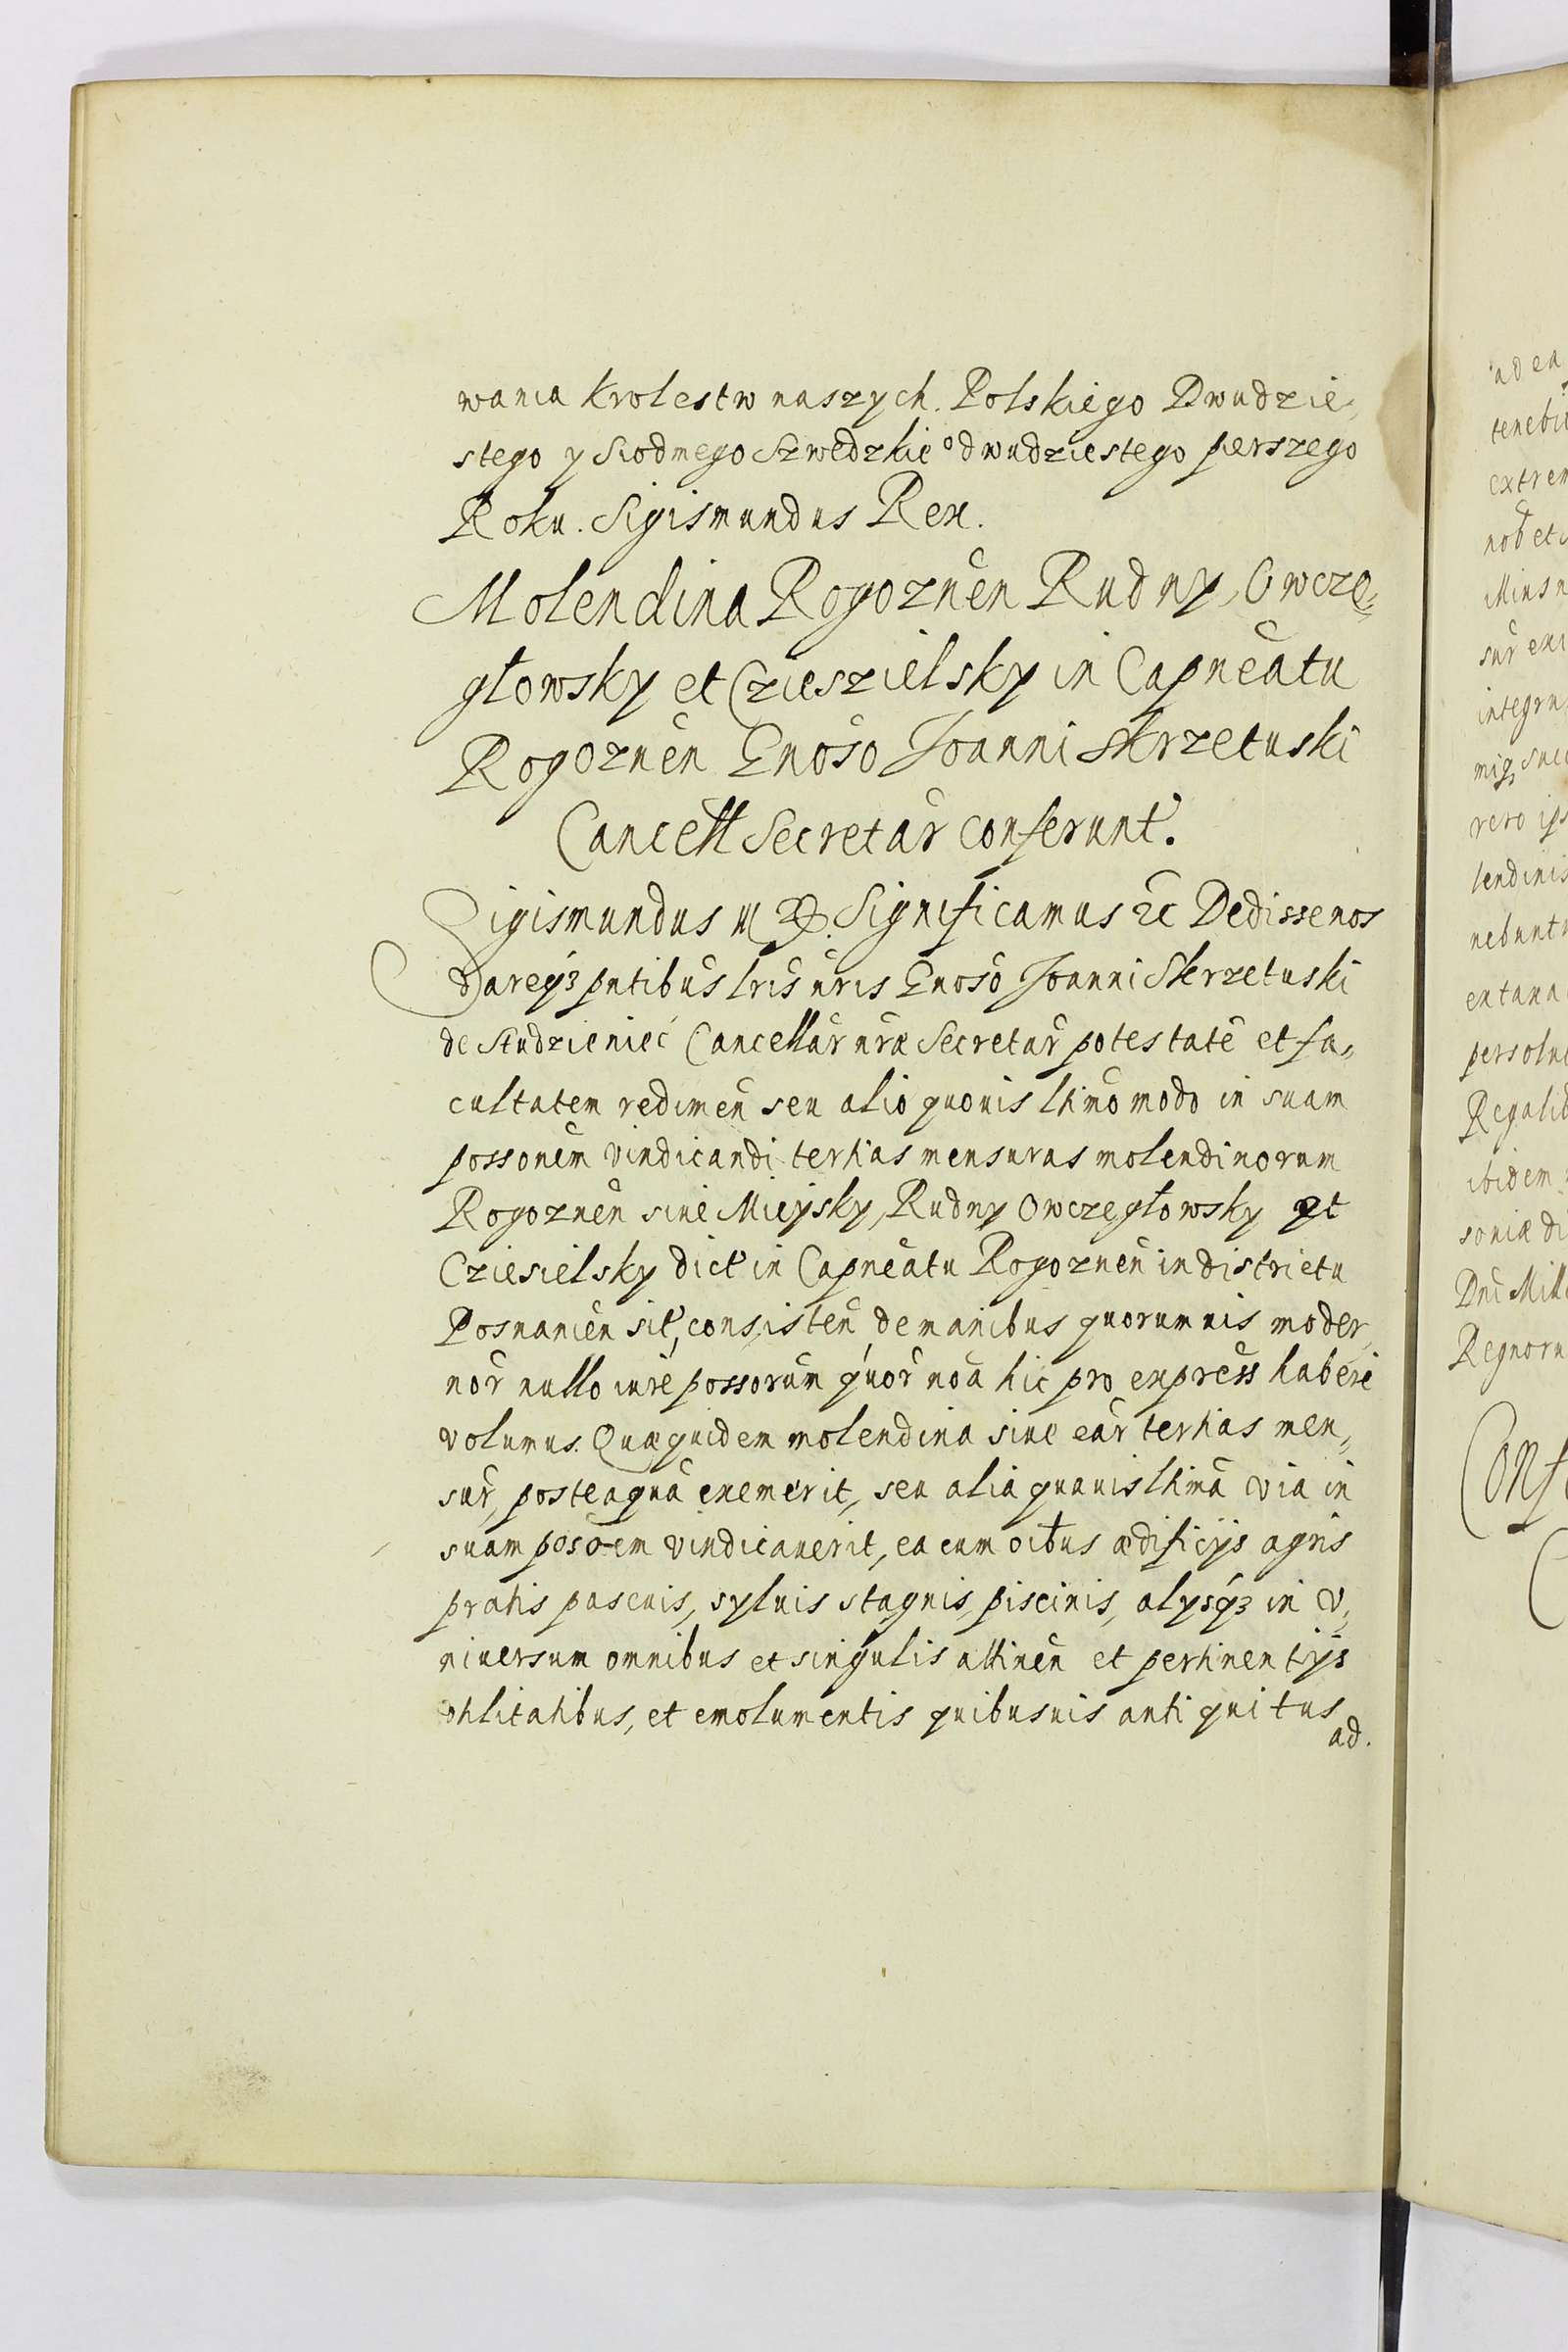 wania krolestw naszych. Polskiego Dwudzie,
stego y Siodmego Szwedzkie⁰ dwudziestego pierszego
Roku. Sigismundus Rex.
Molendina Rogoznen̄ Rudny, Owcze„
głowsky et Czieszielsky in Capneātu
Rogoznen̄ Gnōso Joanni Skrzetuski
Cancell̄ Secretar̄ conferunt̛.
Sigismundus III Significamus &c Dedisse nos
dareq́ꝫ pn̄tibus lr̄is nr̄is Gnōso Joanni Skrzetuski
de Studzieniec Cancellar̄ nr̄æ Secretar̄ potestatē et fa„
cultatem redimen̄ seu alio quouis lt̄imo modo in suam
possonēm vindicandi tertias mensuras molendinorum
Rogoznen̄ siue Mieysky, Rudny Owczegłowsky et
Cziesielsky dict̛ in Capneātu Rogoznen̄ in districtu
Posnanien̄ sit̛, consisten̄ de manibus quorumuis moder,
nor̄ nullo iure possorum̄ quor̄ noā hic pro express̄ haberi
volumus. Quæquidem molendina siue ear̄ tertias men„
sur̄, posteaquā exemerit, seu alia quauis lt̄ima via in
suam posōem vindicauerit, ea cum oībus ædificijs agris
pratis pascuis, syluis stagnis, piscinis, alysq́ꝫ in V„
niuersum omnibus et singulis attinen̄ et pertinentijs
vtilitatibus, et emolumentis quibusuis antiquitus
ad.
ad ea
extrem
nob̄ et
sur̄ exi
integru
vero ips
lendinis
nebunt
persolu
Regalib
ibidem
soniæ di
Dnī Mill
Regnoru
Conf